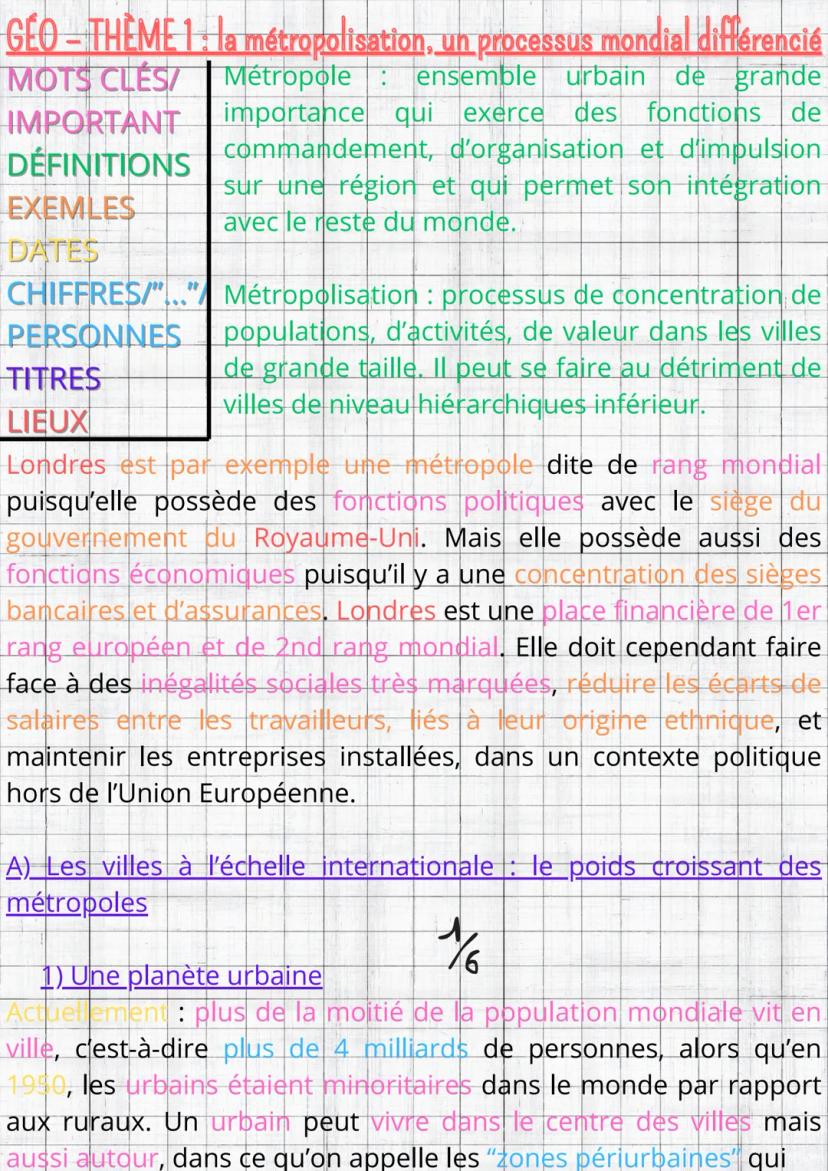 GÉO – THÈME 1 : la métropolisation, un processus mondial différencié
MOTS CLÉS/
IMPORTANT
DÉFINITIONS
EXEMLES
DATES
CHIFFRES/”...”/
PERSONNES
TITRES
LIEUX
Métropole : ensemble urbain de grande
importance qui exerce des fonctions de
commandement, d’organisation et d’impulsion
sur une région et qui permet son intégration
avec le reste du monde.
Métropolisation : processus de concentration de
populations, d’activités, de valeur dans les villes
de grande taille. Il peut se faire au détriment de
villes de niveau hiérarchiques inférieur.
Londres est par exemple une métropole dite de rang mondial
puisqu’elle possède des fonctions politiques avec le siège du
gouvernement du Royaume-Uni. Mais elle possède aussi des
fonctions économiques puisqu’il y a une concentration des sièges
bancaires et d’assurances. Londres est une place financière de 1er
rang européen et de 2nd rang mondial. Elle doit cependant faire
face à des inégalités sociales très marquées, réduire les écarts de
salaires entre les travailleurs, liés à leur origine ethnique, et
maintenir les entreprises installées, dans un contexte politique
hors de l’Union Européenne.
A) Les villes à l’échelle internationale : le poids croissant des
métropoles
1/6
1) Une planète urbaine
Actuellement : plus de la moitié de la population mondiale vit en
ville, c’est-à-dire plus de 4 milliards de personnes, alors qu’en
1950, les urbains étaient minoritaires dans le monde par rapport
aux ruraux. Un urbain peut vivre dans le centre des villes mais
aussi autour, dans ce qu’on appelle les “zones périurbaines” qui